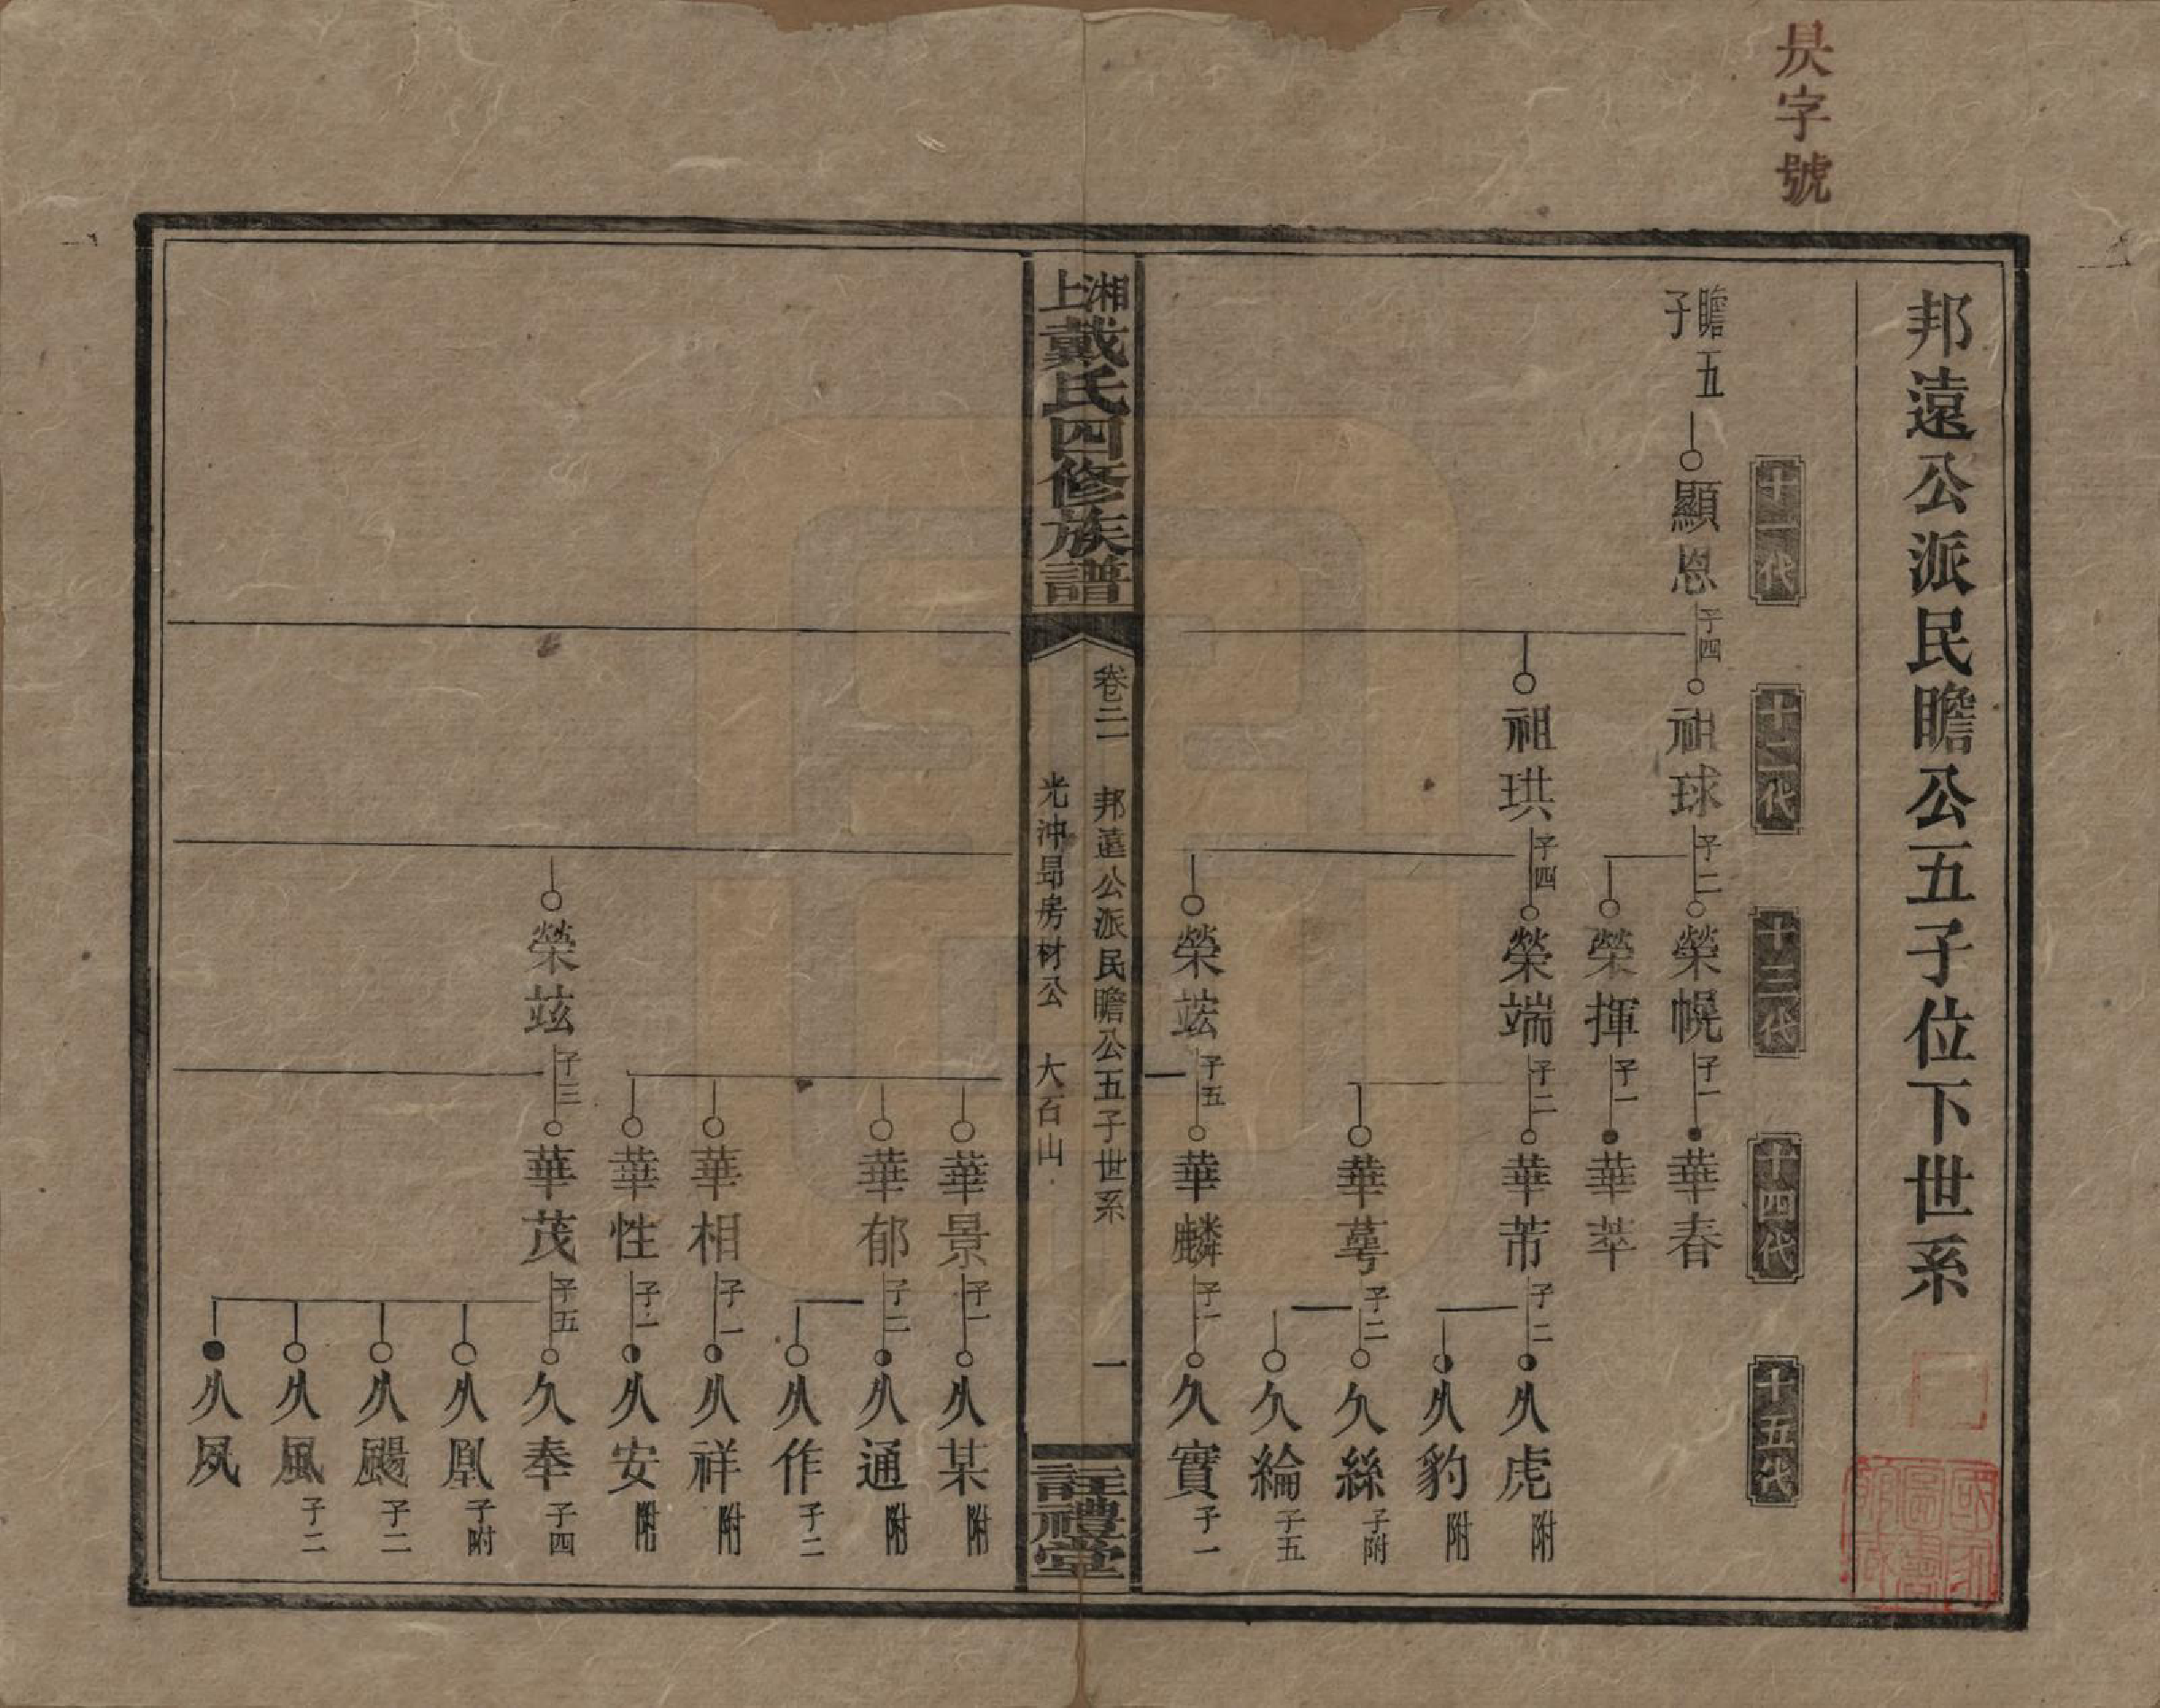 昃字號
邦遠公派民瞻公五子位下世系
十一代
十二代
十三代
十四代
十五代
瞻五子
顯恩 子四
祖球 子二
榮幌 子一
華春
榮揮 子一
華萃
祖珙 子四
榮端 子二
華芾 子二
久虎 附
久豹 附
華萼 子二
久絲 子附
久綸 子五
榮竑 子五
華麟 子一
久寶 子一
湘上戴氏四修族譜
卷二一 邦遠公派民瞻公五子世系 一
光沖昻房材公 大石山
註禮堂
華景 子一
久某 附
華郁 子二
久通 附
久作 子二
華相 子一
久祥 附
華性 子一
久安 附
榮玆 子三
華茂 子五
久奉 子四
久凰 子附
久颺 子二
久風 子二
久夙